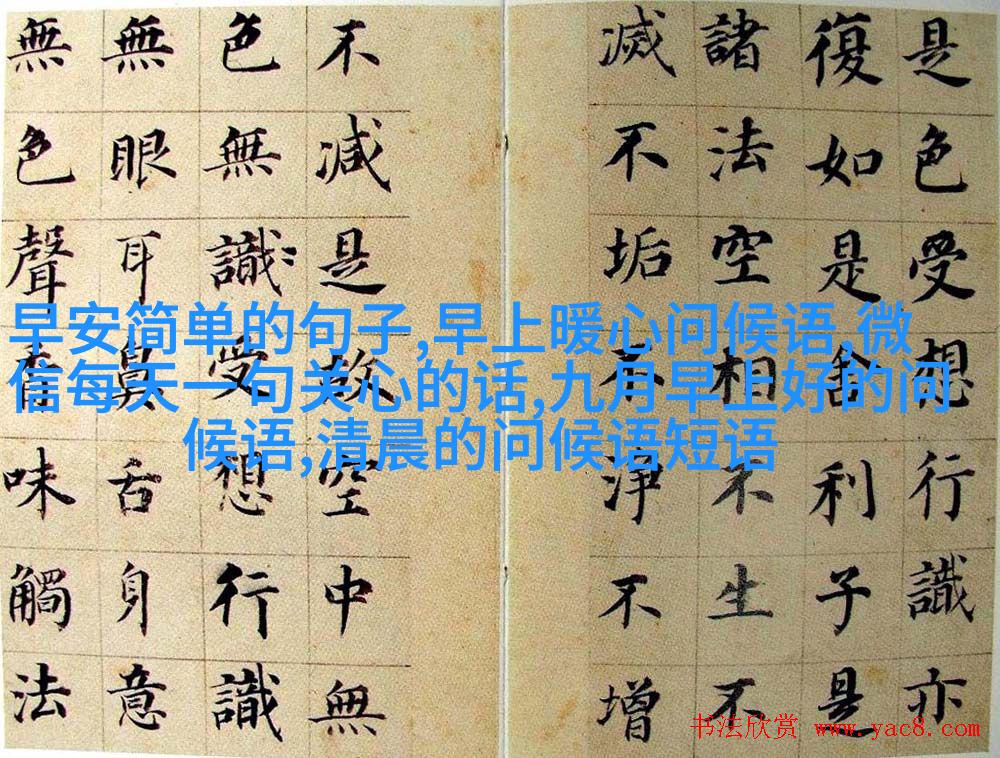 是色受想行識亦
復如是舍利子是
諸法空相不生不
滅不垢不淨不增
不減是故空中無
色無識受想行識
無眼耳鼻舌身意
無色聲香味觸法
早安简单的句子,早上暖心问候语,微
信每天一句关心的话,九月早上好的问
候语,清晨的问候语短语
书法欣赏 www.yac8.com